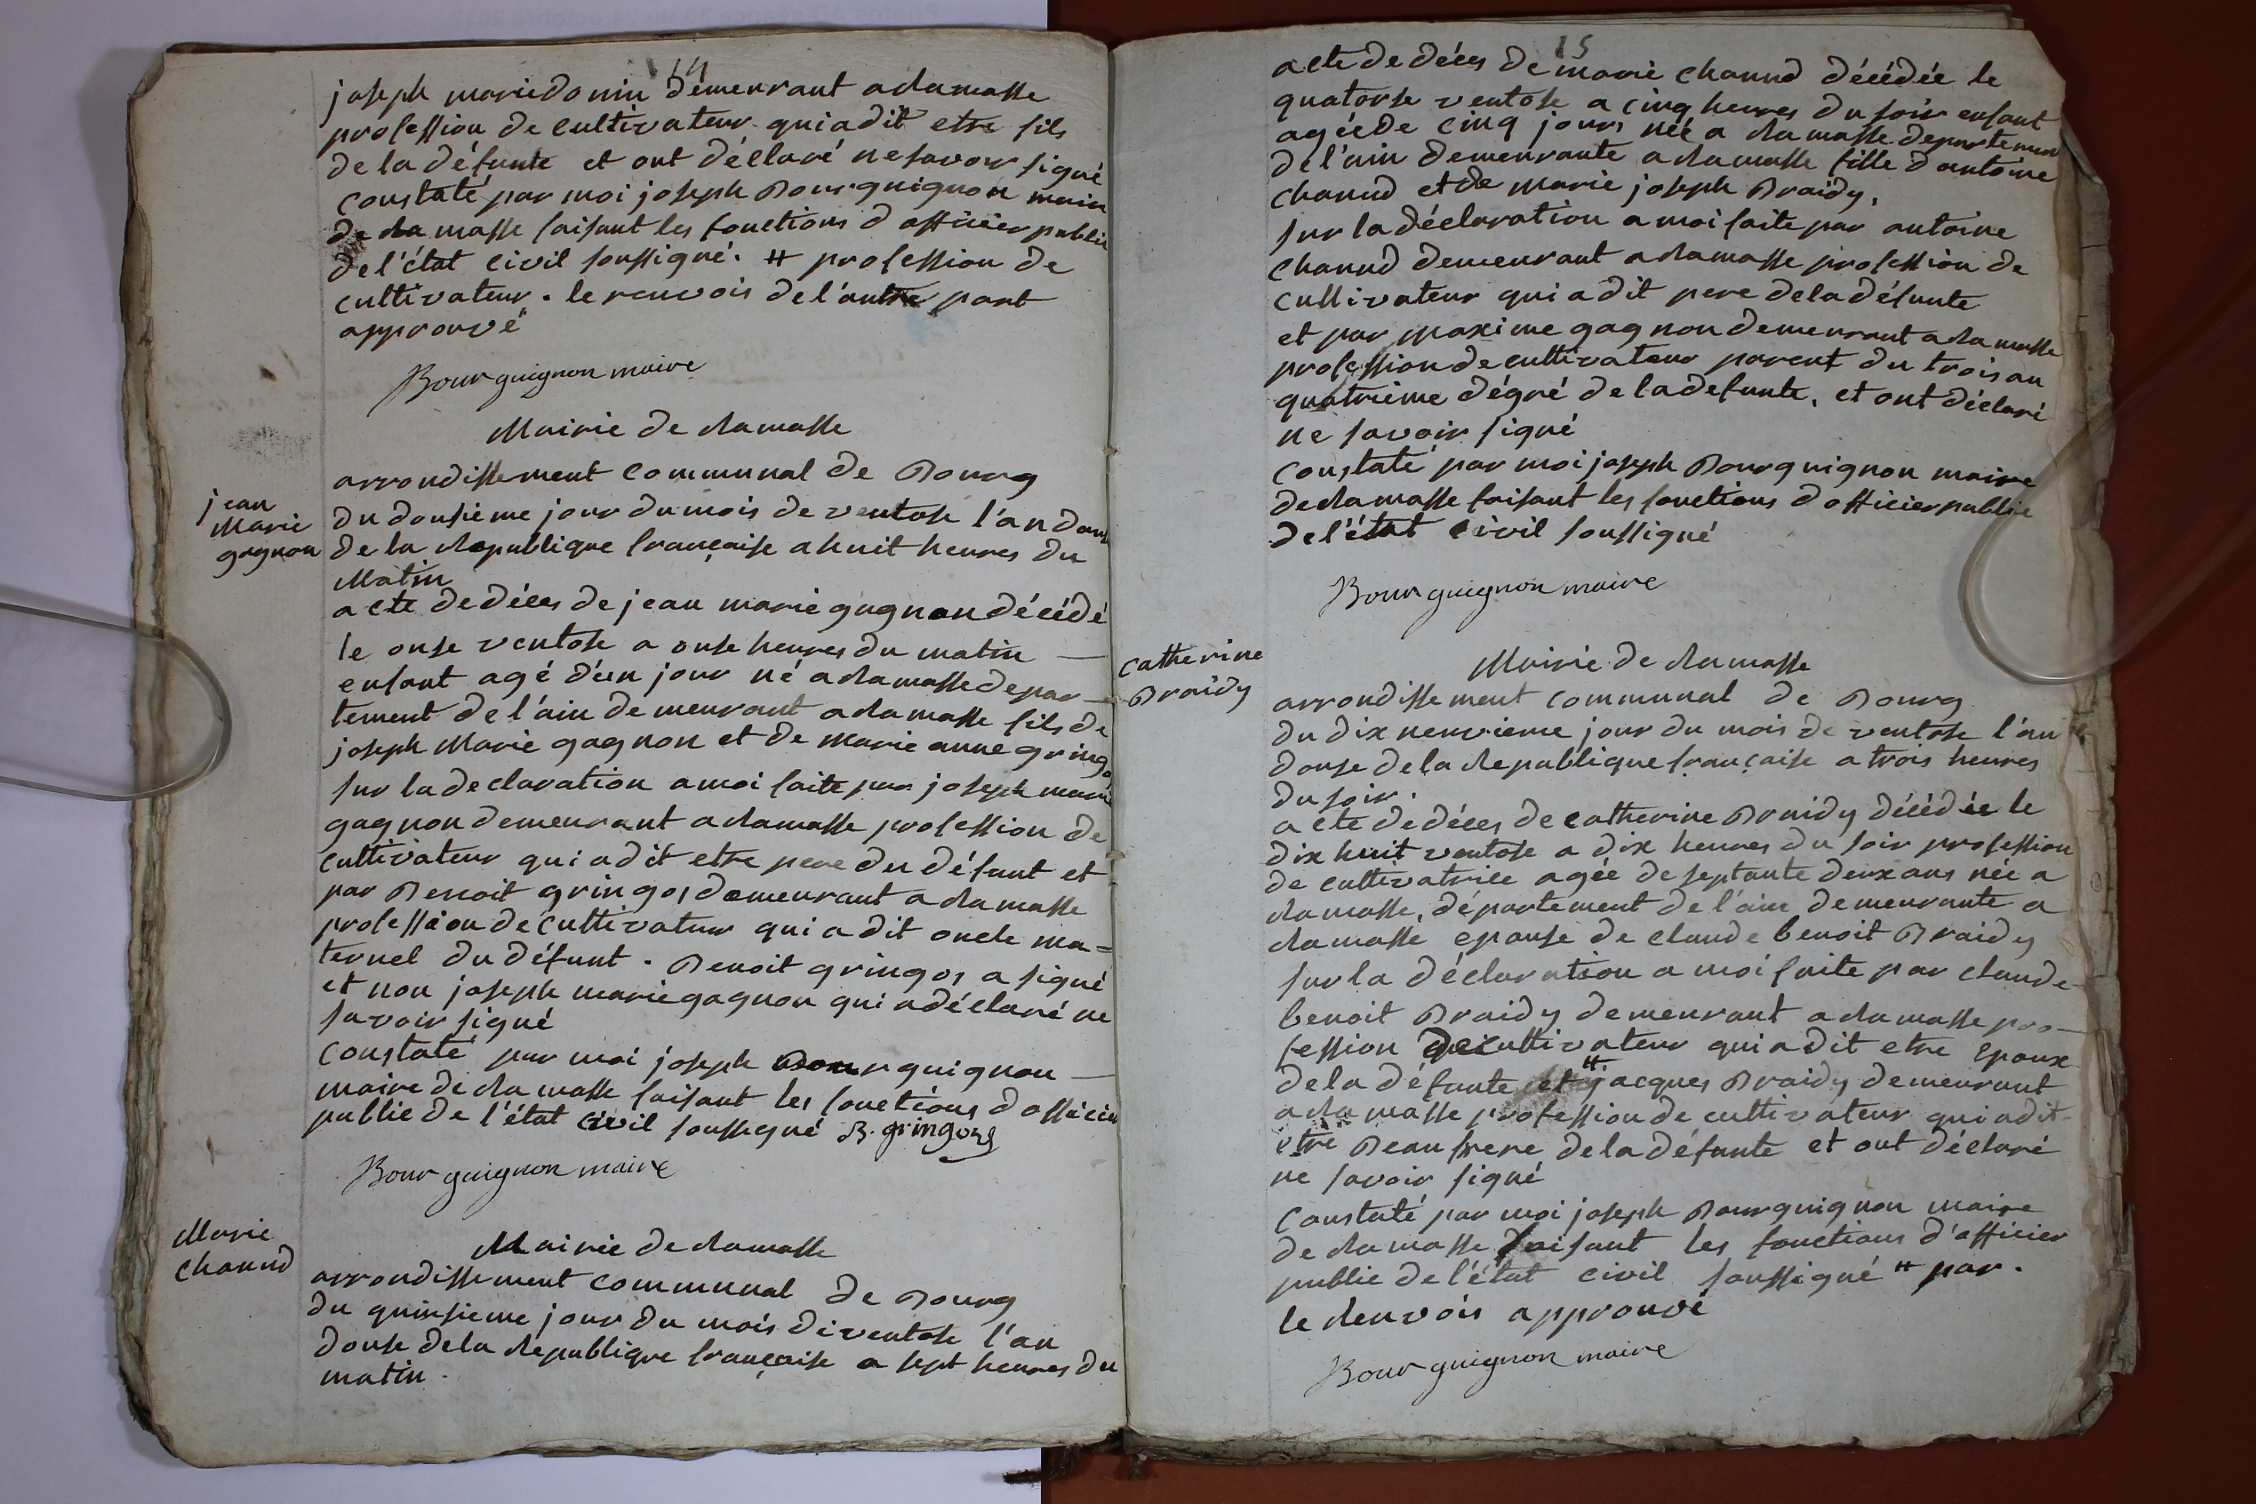 14
joseph marie donin demeurant a Ramasse
profession de cultivateur qui a dit etre fils
de la défunte et ont déclaré ne savoir signé
constaté par moi joseph Bourguignon maire
de Ramasse faisant les fonctions d officier public
de l'état civil soussigné. # profession de
cultivateur. le renvois de l'autre part
approuvé
Bourguignon maire
Mairie de Ramasse
arrondissement communal de Bourg
jean
Marie
gagnon
du dousieme jour du mois de ventose l'an douse
de la Republique française a huit heures du
Matin
acte de déces de jean marie gagnon décédé
le onse ventose a onse heures du matin —
enfant agé d'un jour né a Ramasse depar-
tement de l'ain demeurant a Ramasse fils de
joseph Marie gagnon et de Marie anne gringos
sur la declaration a moi faite par joseph marie
gagnon demeurant a Ramasse profession de
cultivateur qui a dit etre pere du défunt et
par Benoit gringos demeurant a Ramasse
profession de cultivateur qui a dit oncle ma=
ternel du défunt. Benoit gringos a signé
et non joseph marie gagnon qui a déclaré ne
savoir signé
constaté par moi joseph Bourguignon —
maire de Ramasse faisant les fonctions d officier
public de l'état civil soussigné B. gringoz
Bourguignon maire
Marie
Chanud
Mairie de Ramasse
arrondissement communal de Bourg
du quinsieme jour du mois de ventose l'an
douse de la Republique française a sept heures du
matin.
15
acte de déces de marie Chanud décédée le
quatorse ventose a cinq heures du soir enfant
agée de cinq jours née a Ramasse departement
de l'ain demeurante a Ramasse fille d antoine
Chanud et de Marie joseph Braidy.
sur la déclaration a moi faite par antoine
Chanud demeurant a Ramasse profession de
cultivateur qui a dit pere de la défunte
et par Maxime gagnon demeurant a Ramasse
profession de cultivateur parent du trois au
quatrieme dégré de la defunte, et ont déclaré
ne savoir signé
constaté par moi joseph Bourguignon maire
de Ramasse faisant les fonctions d officier public
de l'état civil soussigné
Bourguignon maire
catherine
Braidy
Mairie de Ramasse
arrondissement communal de Bourg
du dix neuvieme jour du mois de ventose l'an
douse de la Republique française a trois heures
du soir.
acte de déces de catherine Braidy décédée le
dix huit ventose a dix heures du soir profession
de cultivatrice agée de septante deux ans née a
Ramasse, département de l'ain demeurante a
Ramasse epouse de claude benoit Braidy
sur la déclaration a moi faite par claude
benoit Braidy demeurant a Ramasse pro-
fession de cultivateur qui a dit etre Epoux
de la défunte et # jacques Braidy demeurant
a Ramasse profession de cultivateur qui a dit
etre Beau frere de la défunte et ont déclaré
ne savoir signé
Constaté par moi joseph Bourguignon maire
de Ramasse faisant les fonctions d'officier
public de l'état civil soussigné # par.
le Renvois approuvé
Bourguignon maire